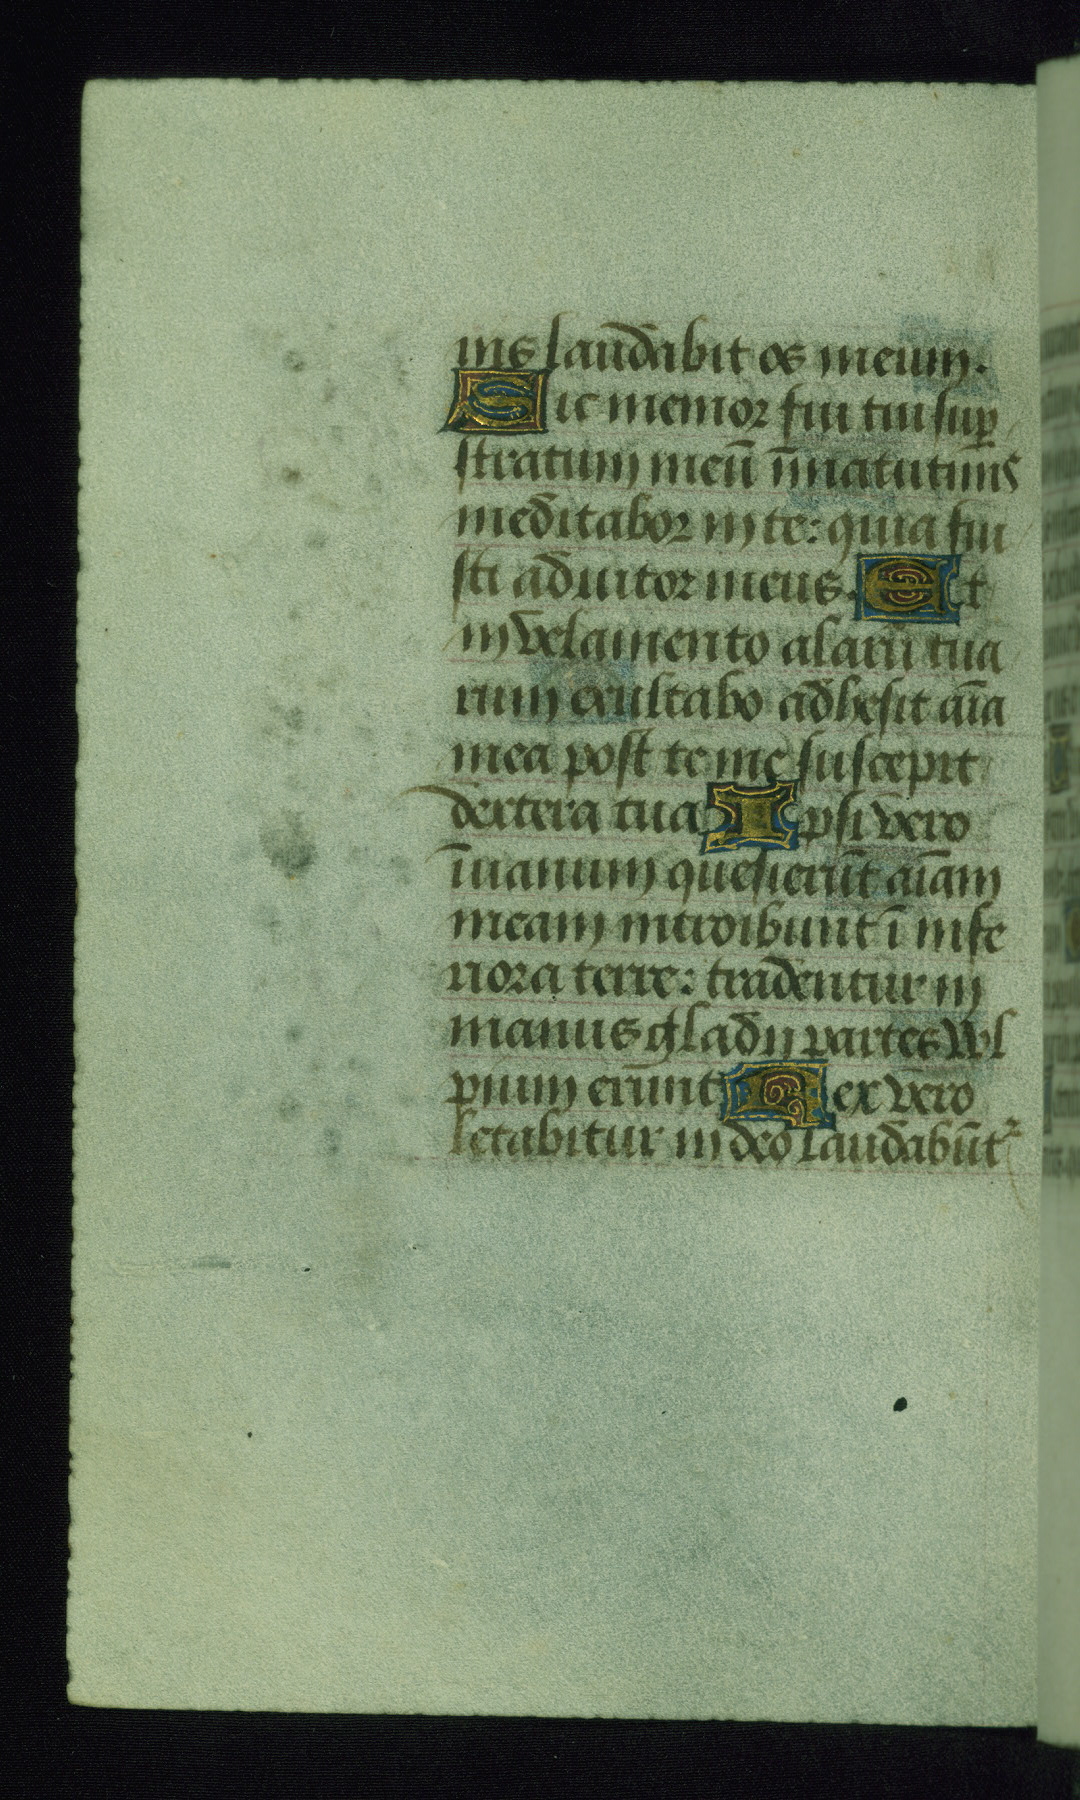 nis laudabit os meum.
Sic memor fui tui sup̱
stratum meū ī matutinis
meditabor in te: quia fui
sti adiutor meus. Et
in velamento alarū tua
rum exultabo adhesit aīa
mea post te me suscepit
dextera tua Ipsi vero
īuanum quesierūt aīam
meam introibunt ī infe
riora terre: tradentur in
manus gladii partes vul
pium erunt Rex vero
letabitur in deo laudabūt᷑